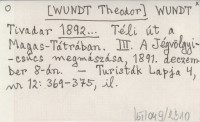 [WUNDT Theodor] WUNDT
Tivadar 1892... Téli út a
Magas-Tátrában. III. A Jégvölgyi-
csúcs megmászása, 1891. decem-
ber 8-án. — Turisták Lapja 4,
nr 12: 369-375, il.